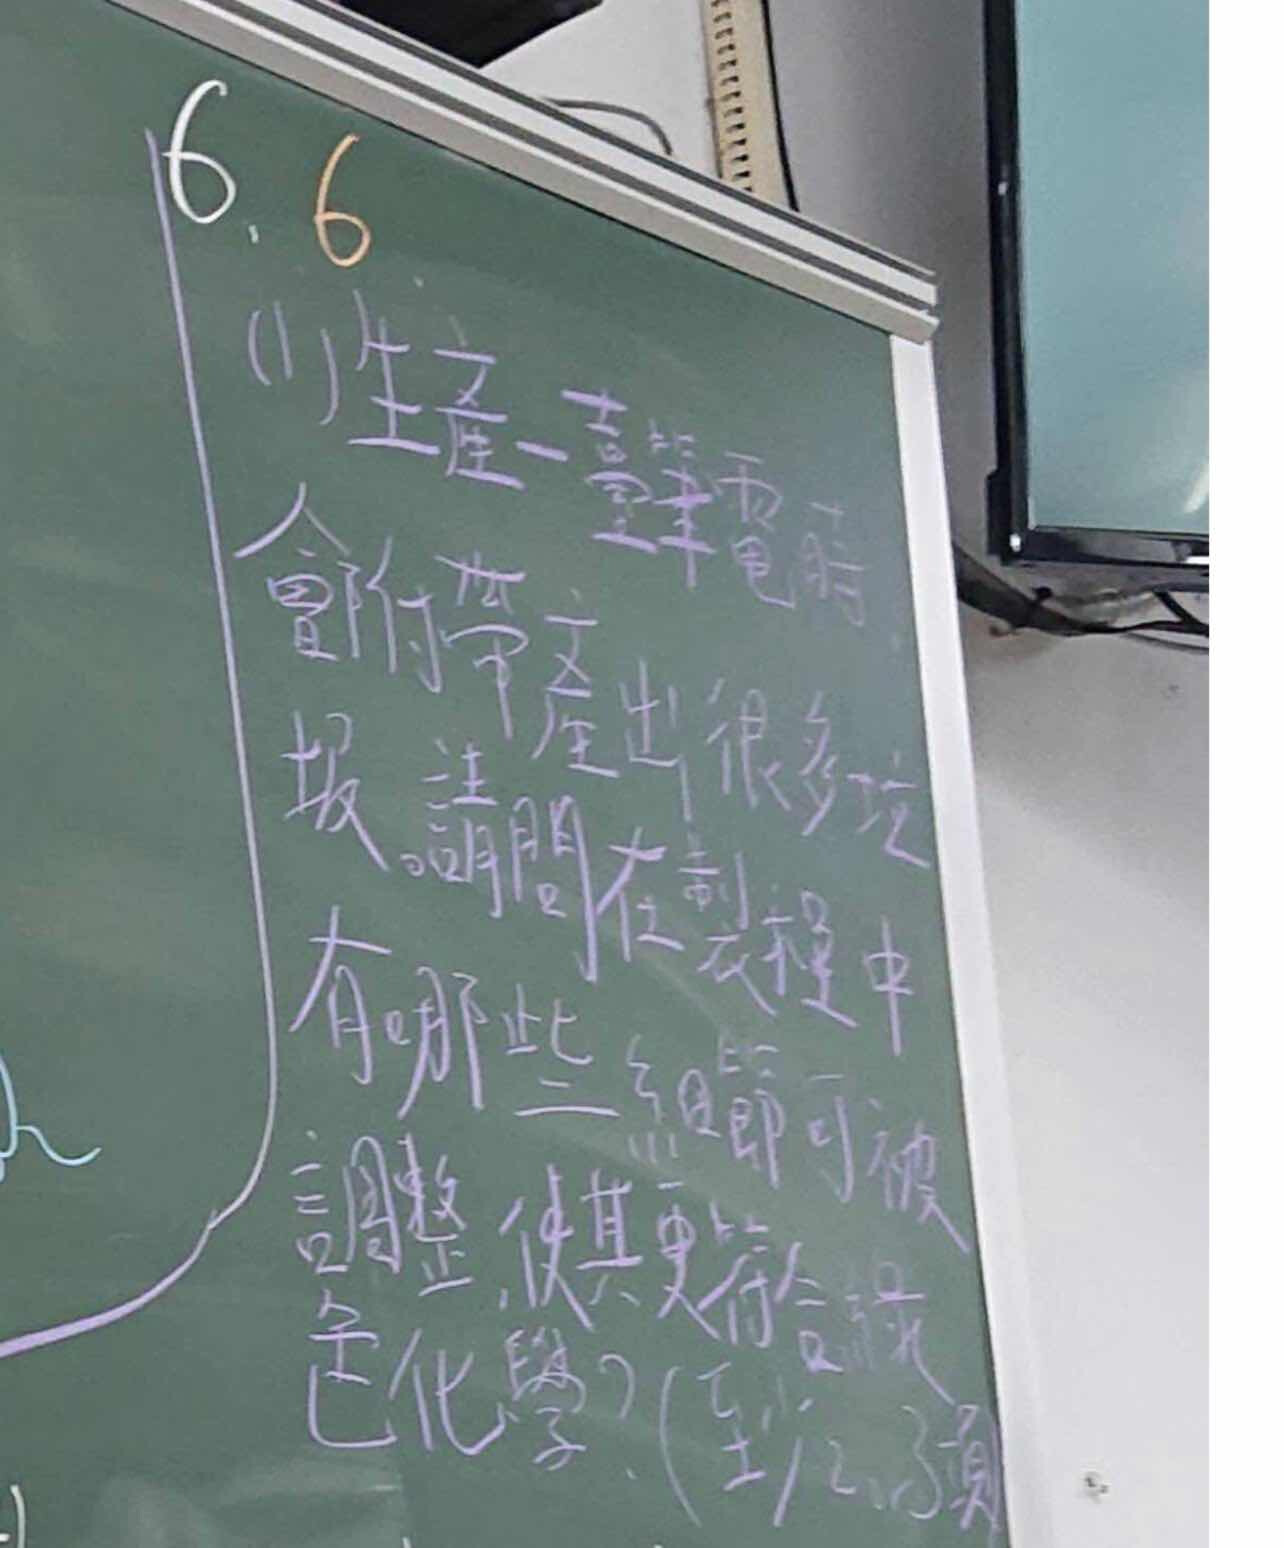 6. 6
(1)生產一臺筆電時
會附帶產出很多垃
圾。請問在製程中
有哪些細節可被
調整,使其更符合綠
色化學?(至少2、3項